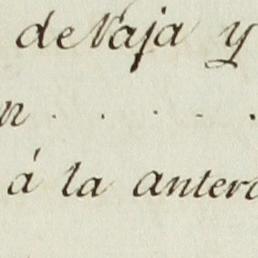 de Vaja y
n . . . .
á la anteri